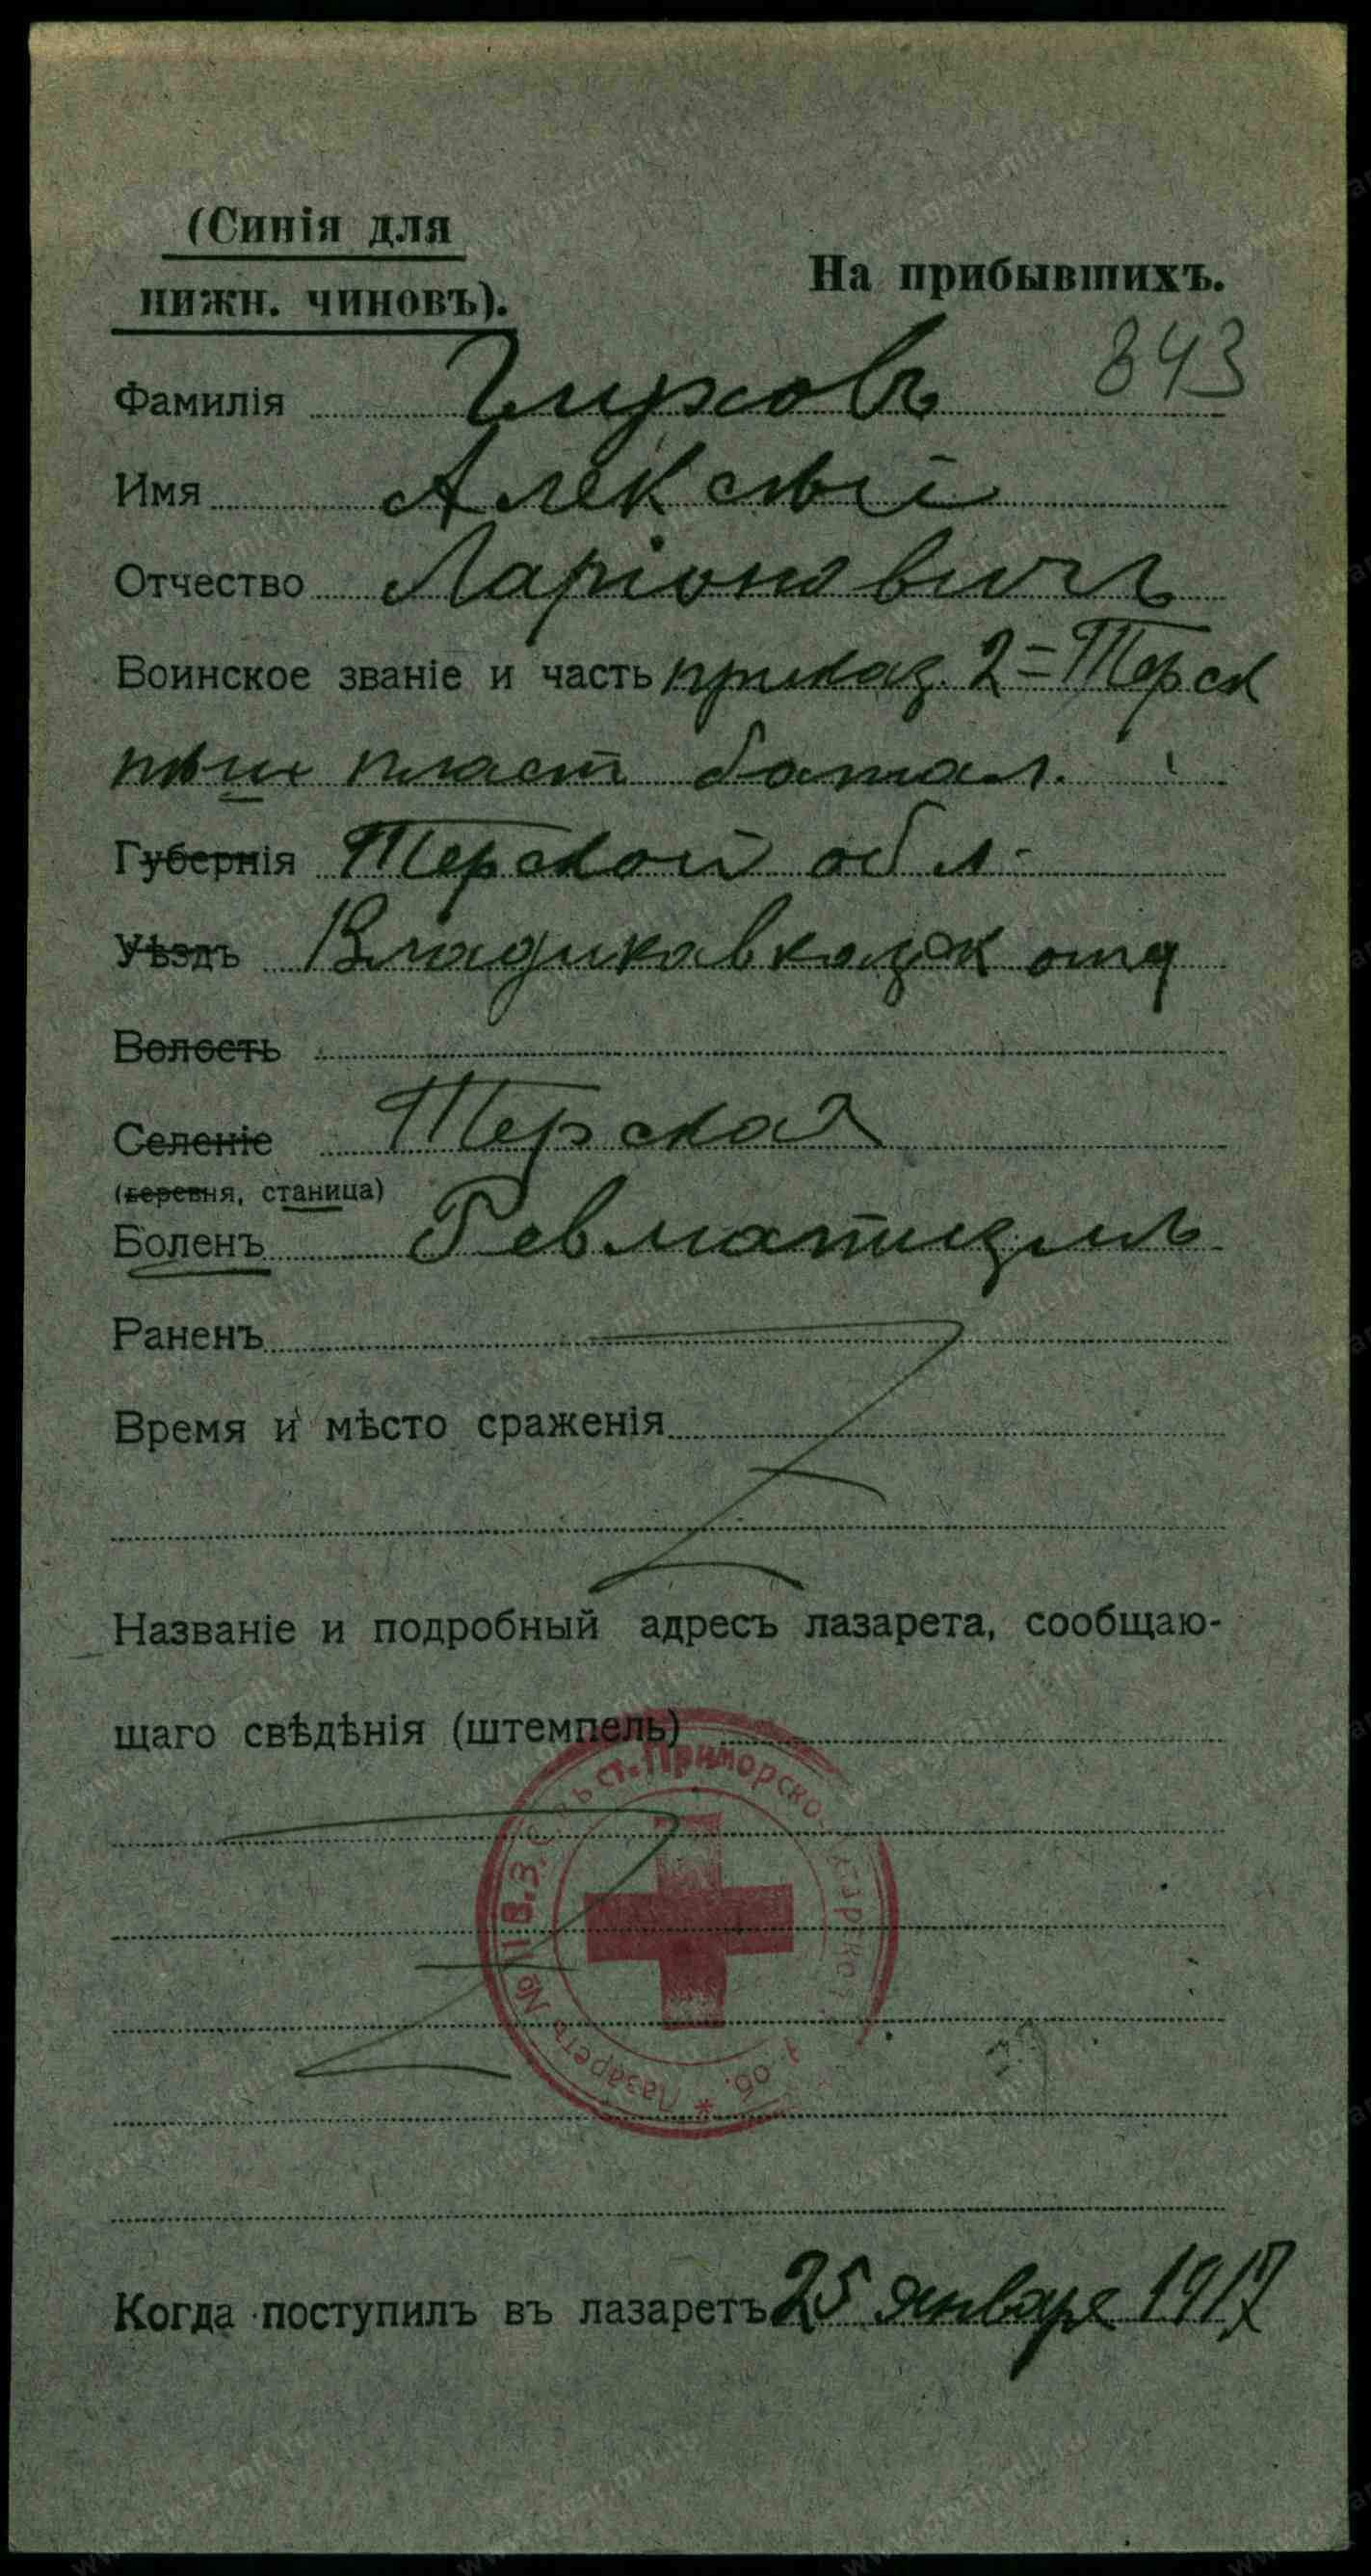 (Синія для
нижн. чиновъ).
На прибывшихъ.
843
Фамилія Чирковъ
Имя Алексѣй
Отчество Ларіоновичъ
Воинское званіе и часть приказ. 2= Терск
пѣш пласт батал.
Губернія Терской обл.
Уѣздъ Владикавказск отд
Волость
Селеніе Терская
(деревня, станица)
Боленъ Ревматизмъ
Раненъ
Время и мѣсто сраженія
Названіе и подробный адресъ лазарета, сообщаю-
щаго свѣдѣнія (штемпель)
Лазаретъ № 11 В.З. ст. Приморско-
Когда поступилъ въ лазаретъ 25 января 1917